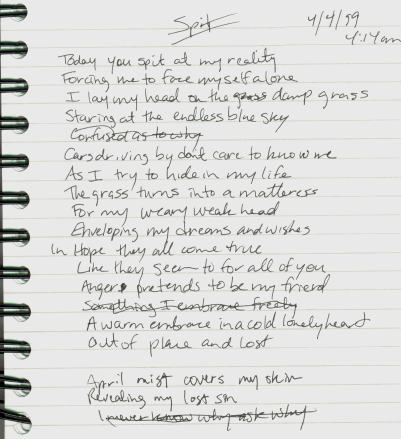 Spit
4/4/99
4:14am
Today you spit at my reality
Forcing me to face myself alone
I lay my head on the grass damp grass
Staring at the endless blue sky
Confused as to why
Cars driving by dont care to know me
As I try to hide in my life
The grass turns into a mattress
For my weary weak head
Enveloping my dreams and wishes
In Hope they all come true
Like they seem to for all of you
Anger pretends to be my friend
Something I embrace freely
A warm embrace in a cold lonely heart
Out of place and lost
April mist covers my skin
Revealing my lost sin
I never know why ask why